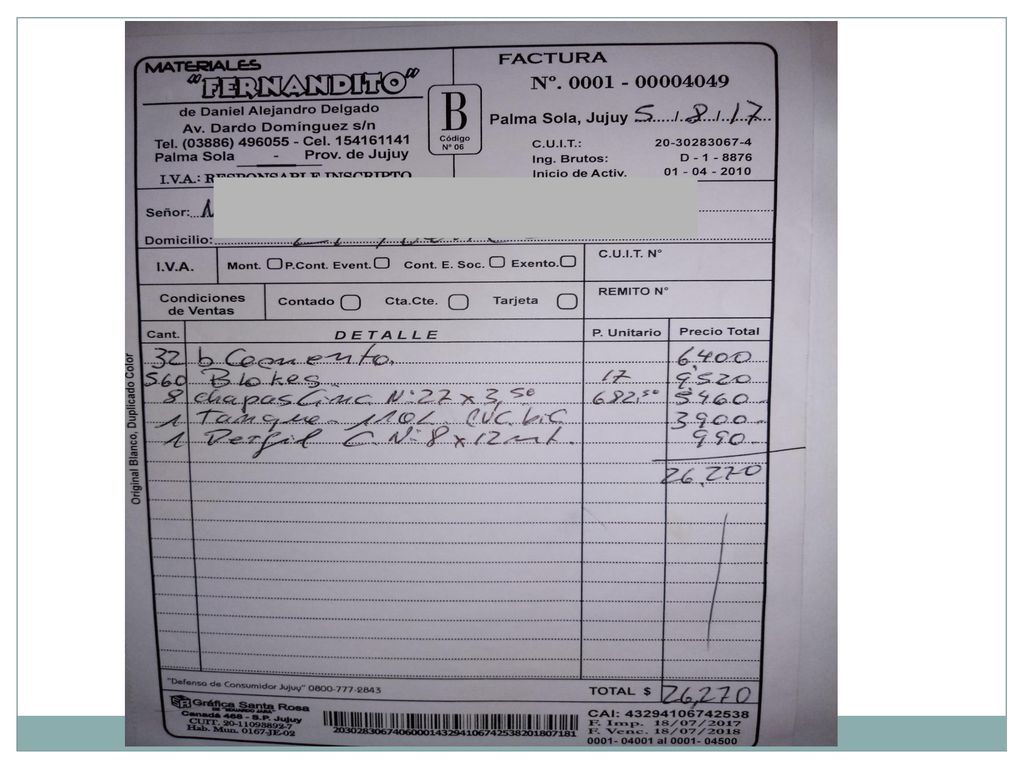 MATERIALES
"FERNANDITO"
de Daniel Alejandro Delgado
Av. Dardo Domínguez s/n
Tel. (03886) 496055 - Cel. 154161141
Palma Sola - Prov. de Jujuy
I.V.A.: RESPONSABLE INSCRIPTO
B
Código
Nº 06
FACTURA
Nº. 0001 - 00004049
Palma Sola, Jujuy 5 / 8 / 17
C.U.I.T.: 20-30283067-4
Ing. Brutos: D - 1 - 8876
Inicio de Activ. 01 - 04 - 2010
Señor:
Domicilio:
I.V.A. Mont. P.Cont. Event. Cont. E. Soc. Exento. C.U.I.T. N°
Condiciones de Ventas Contado Cta.Cte. Tarjeta REMITO N°
Cant. DETALLE P. Unitario Precio Total
32 b Cemento. 6400
560 Blokes 17 9,520
8 chapas Cinc N:27 x 3,50 682,50 5460
1 Tanque 110L 3900
1 Perfil C. N:8 x 12 mt. 990
26,270
Original Blanco, Duplicado Color
"Defensa de Consumidor Jujuy" 0800-777-2843
TOTAL $ 26,270
Gráfica Santa Rosa
DE "EDUARDO JARA"
Canadá 468 - S.P. Jujuy
CUIT. 20-11098892-7
Hab. Mun. 0167-JE-02
2030283067406000143294106742538201807181
CAI: 43294106742538
F. Imp. 18/07/2017
F. Venc. 18/07/2018
0001- 04001 al 0001- 04500